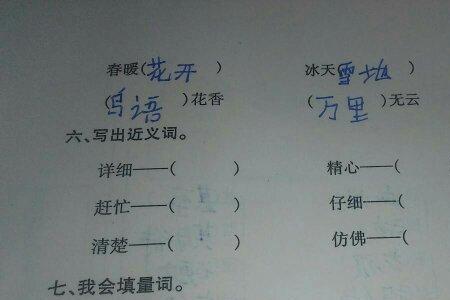 春暖(花开 ) 冰天(雪地 )
(鸟语 )花香 (万里 )无云
六、写出近义词。
详细——( ) 精心——(
赶忙——( ) 仔细——(
清楚——( ) 仿佛——(
七、我会填量词。